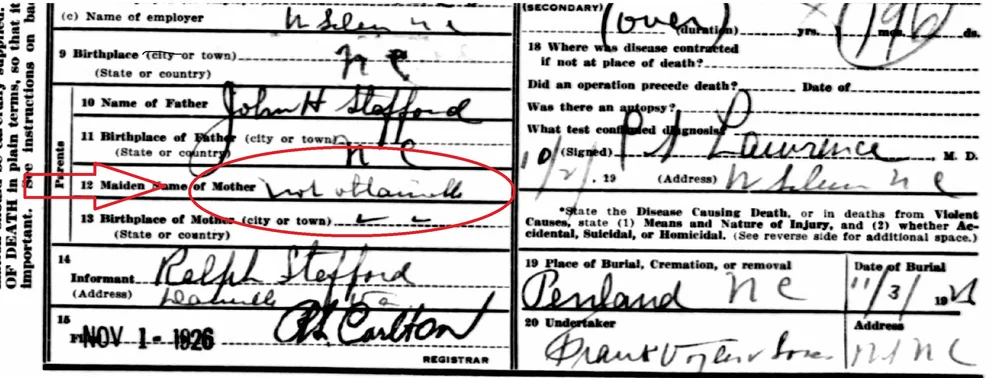 OF DEATH in plain terms, so that it
important. See instructions on bac
(c) Name of employer W Salem N C
9 Birthplace (city or town) N C
(State or country)
Parents
10 Name of Father John H Stafford
11 Birthplace of Father (city or town) N C
(State or country)
12 Maiden Name of Mother not obtainable
13 Birthplace of Mother (city or town)
(State or country)
14
Informant Ralph Stafford
(Address) Va
15
NOV 1- 1926 Carlton
REGISTRAR
(SECONDARY) (over)
(duration) yrs. mos. ds.
196
18 Where was disease contracted
if not at place of death?
Did an operation precede death? Date of
Was there an autopsy?
What test confirmed diagnosis?
(Signed) Lawrence, M. D.
, 19 (Address) W Salem N C
*State the Disease Causing Death, or in deaths from Violent
Causes, state (1) Means and Nature of Injury, and (2) whether Ac-
cidental, Suicidal, or Homicidal. (See reverse side for additional space.)
19 Place of Burial, Cremation, or removal
Penland N C
Date of Burial
11/3/ 19
20 Undertaker
Frank Vogler & Sons
Address
N C